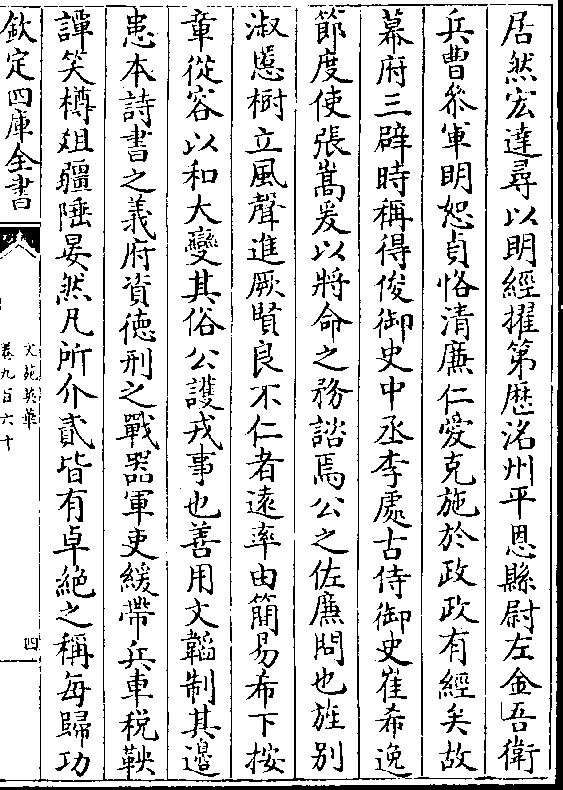 居然宏達尋以明經擢第歴洺州平恩縣尉左金吾衛
兵曹叅軍明恕貞恪清廉仁愛克施於政政有經矣故
幕府三辟時稱得俊御史中丞李處古侍御史崔希逸
節度使張嵩爰以將命之務諮焉公之佐廉問也旌别
淑慝樹立風聲進厥賢良不仁者逺率由簡易希下按
章從容以和大變其俗公護戎事也善用文韜制其邉
患本詩書之義府資徳刑之戰器軍吏緩帶兵車税鞅
譚笑樽俎疆陲晏然凡所介貳皆有卓絶之稱每歸功
欽定四庫全書
文苑英華
卷九百六十
四